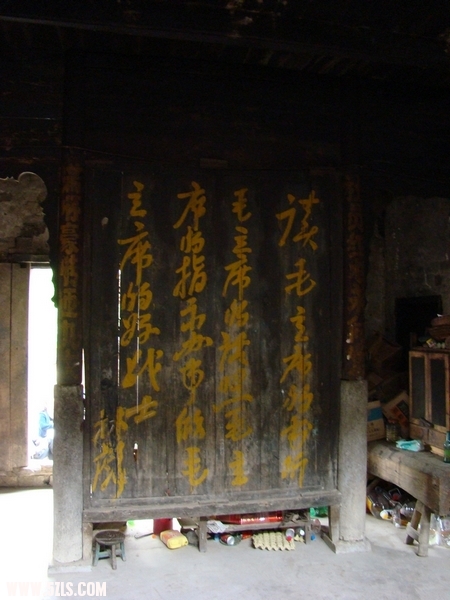 读毛主席的书听
毛主席的话照毛主
席的指示办事做毛
主席的好战士
林彪